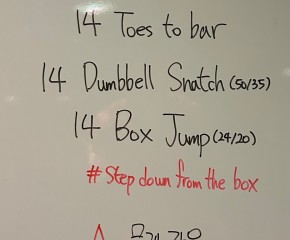 14 Toes to bar
14 Dumbbell Snatch (50/35)
14 Box Jump (24/20)
# Step down from the box